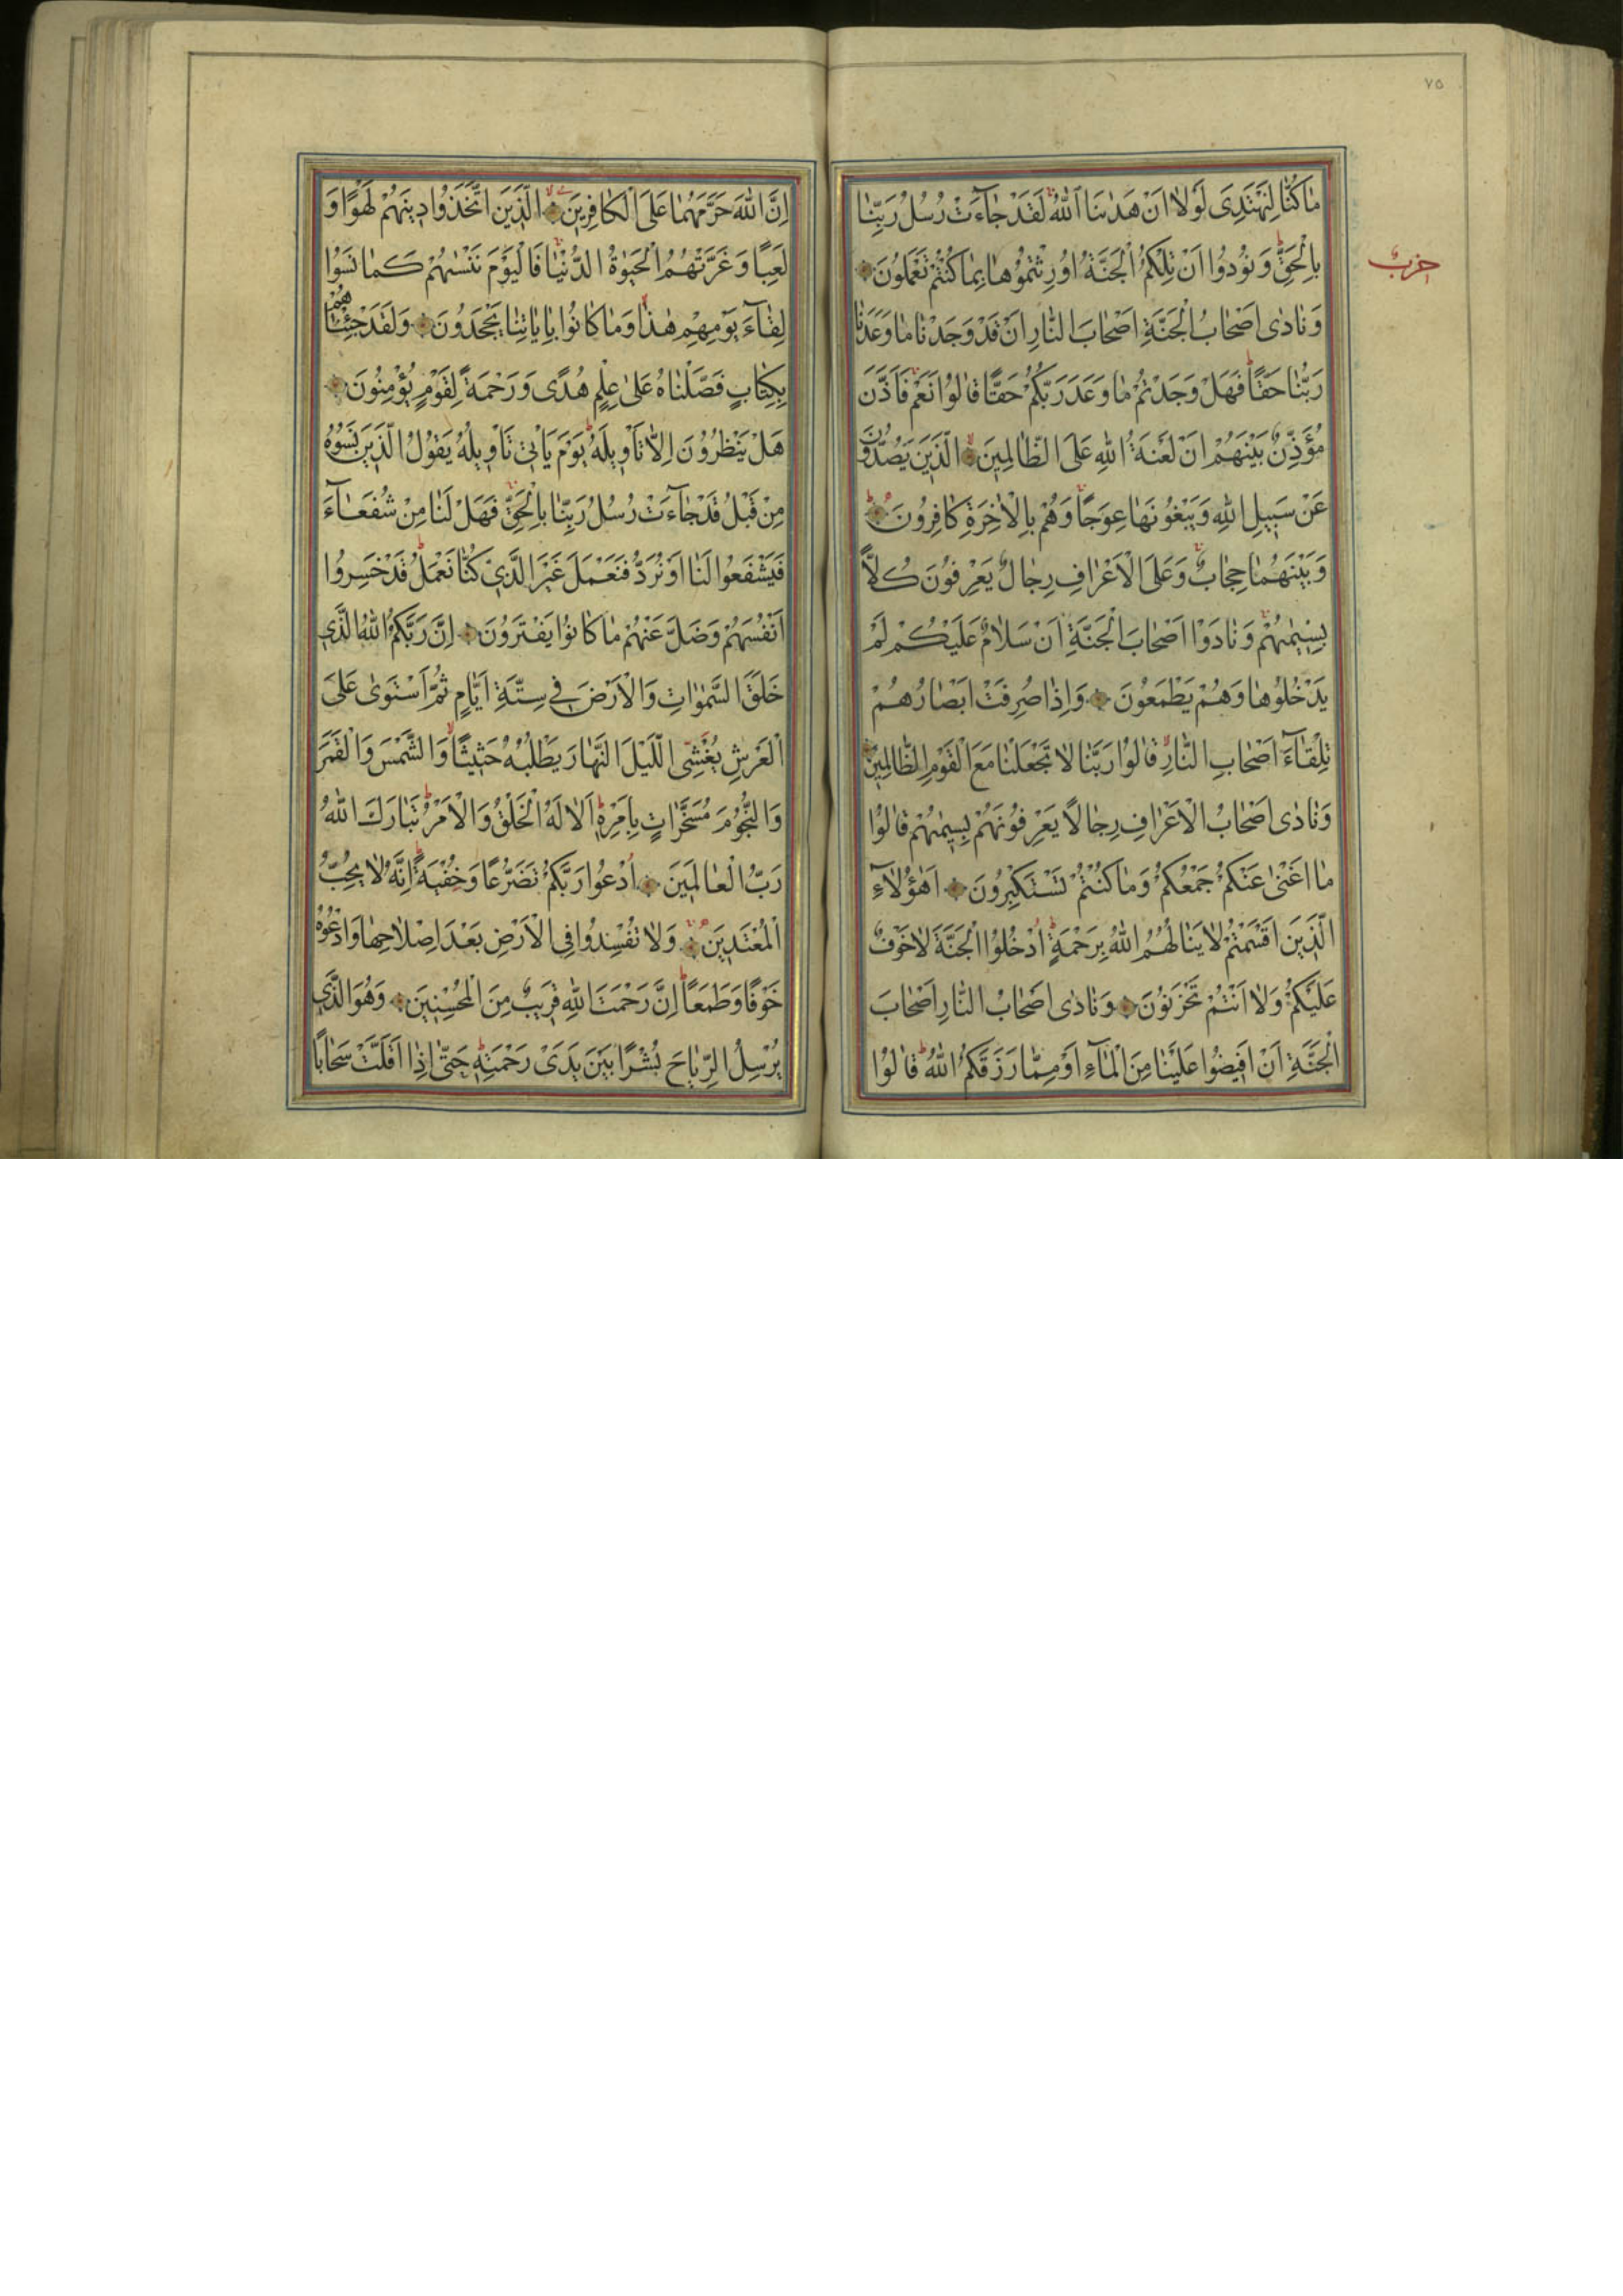 ٧٥
مَاكُنَّا لِنَهْتَدِىَ لَوْلَا اَنْ هَدٰينَا اللّٰهُ لَقَدْ جَاۤءَتْ رُسُلُ رَبِّنَا
بِالْحَقِّ وَنُودُوا اَنْ تِلْكُمُ الْجَنَّةُ اُورِثْتُمُوهَا بِمَا كُنْتُمْ تَعْمَلُونَ
حزب
وَنَادٰى اَصْحَابُ الْجَنَّةِ اَصْحَابَ النَّارِ اَنْ قَدْ وَجَدْنَا مَا وَعَدَنَا
رَبُّنَا حَقًّا فَهَلْ وَجَدْتُمْ مَا وَعَدَ رَبُّكُمْ حَقًّا قَالُوا نَعَمْ فَاَذَّنَ
مُؤَذِّنٌ بَيْنَهُمْ اَنْ لَعْنَةُ اللّٰهِ عَلَى الظَّالِمِينَ الَّذِينَ يَصُدُّونَ
عَنْ سَبِيلِ اللّٰهِ وَيَبْغُونَهَا عِوَجًا وَهُمْ بِالْاٰخِرَةِ كَافِرُونَ
وَبَيْنَهُمَا حِجَابٌ وَعَلَى الْاَعْرَافِ رِجَالٌ يَعْرِفُونَ كُلًّا
بِسِيمٰيهُمْ وَنَادَوْا اَصْحَابَ الْجَنَّةِ اَنْ سَلَامٌ عَلَيْكُمْ لَمْ
يَدْخُلُوهَا وَهُمْ يَطْمَعُونَ وَاِذَا صُرِفَتْ اَبْصَارُهُمْ
تِلْقَاۤءَ اَصْحَابِ النَّارِ قَالُوا رَبَّنَا لَا تَجْعَلْنَا مَعَ الْقَوْمِ الظَّالِمِينَ
وَنَادٰى اَصْحَابُ الْاَعْرَافِ رِجَالًا يَعْرِفُونَهُمْ بِسِيمٰيهُمْ قَالُوا
مَا اَغْنٰى عَنْكُمْ جَمْعُكُمْ وَمَا كُنْتُمْ تَسْتَكْبِرُونَ اَهٰۤؤُلَاۤءِ
الَّذِينَ اَقْسَمْتُمْ لَا يَنَالُهُمُ اللّٰهُ بِرَحْمَةٍ اُدْخُلُوا الْجَنَّةَ لَا خَوْفٌ
عَلَيْكُمْ وَلَا اَنْتُمْ تَحْزَنُونَ وَنَادٰى اَصْحَابُ النَّارِ اَصْحَابَ
الْجَنَّةِ اَنْ اَفِيضُوا عَلَيْنَا مِنَ الْمَاۤءِ اَوْ مِمَّا رَزَقَكُمُ اللّٰهُ قَالُوا
اِنَّ اللّٰهَ حَرَّمَهُمَا عَلَى الْكَافِرِينَ الَّذِينَ اتَّخَذُوا دِينَهُمْ لَهْوًا وَ
لَعِبًا وَغَرَّتْهُمُ الْحَيٰوةُ الدُّنْيَا فَالْيَوْمَ نَنْسٰيهُمْ كَمَا نَسُوا
لِقَاۤءَ يَوْمِهِمْ هٰذَا وَمَا كَانُوا بِاٰيَاتِنَا يَجْحَدُونَ وَلَقَدْ جِئْنَاهُمْ
بِكِتَابٍ فَصَّلْنَاهُ عَلٰى عِلْمٍ هُدًى وَرَحْمَةً لِقَوْمٍ يُؤْمِنُونَ
هَلْ يَنْظُرُونَ اِلَّا تَأْوِيلَهُ يَوْمَ يَأْتِي تَأْوِيلُهُ يَقُولُ الَّذِينَ نَسُوهُ
مِنْ قَبْلُ قَدْ جَاۤءَتْ رُسُلُ رَبِّنَا بِالْحَقِّ فَهَلْ لَنَا مِنْ شُفَعَاۤءَ
فَيَشْفَعُوا لَنَا اَوْ نُرَدُّ فَنَعْمَلَ غَيْرَ الَّذِي كُنَّا نَعْمَلُ قَدْ خَسِرُوا
اَنْفُسَهُمْ وَضَلَّ عَنْهُمْ مَا كَانُوا يَفْتَرُونَ اِنَّ رَبَّكُمُ اللّٰهُ الَّذِي
خَلَقَ السَّمٰوَاتِ وَالْاَرْضَ فِي سِتَّةِ اَيَّامٍ ثُمَّ اسْتَوٰى عَلَى
الْعَرْشِ يُغْشِى الَّيْلَ النَّهَارَ يَطْلُبُهُ حَثِيثًا وَالشَّمْسَ وَالْقَمَرَ
وَالنُّجُومَ مُسَخَّرَاتٍ بِاَمْرِهِ اَلَا لَهُ الْخَلْقُ وَالْاَمْرُ تَبَارَكَ اللّٰهُ
رَبُّ الْعَالَمِينَ اُدْعُوا رَبَّكُمْ تَضَرُّعًا وَخُفْيَةً اِنَّهُ لَا يُحِبُّ
الْمُعْتَدِينَ وَلَا تُفْسِدُوا فِي الْاَرْضِ بَعْدَ اِصْلَاحِهَا وَادْعُوهُ
خَوْفًا وَطَمَعًا اِنَّ رَحْمَتَ اللّٰهِ قَرِيبٌ مِنَ الْمُحْسِنِينَ وَهُوَ الَّذِي
يُرْسِلُ الرِّيَاحَ بُشْرًا بَيْنَ يَدَىْ رَحْمَتِهِ حَتّٰى اِذَا اَقَلَّتْ سَحَابًا